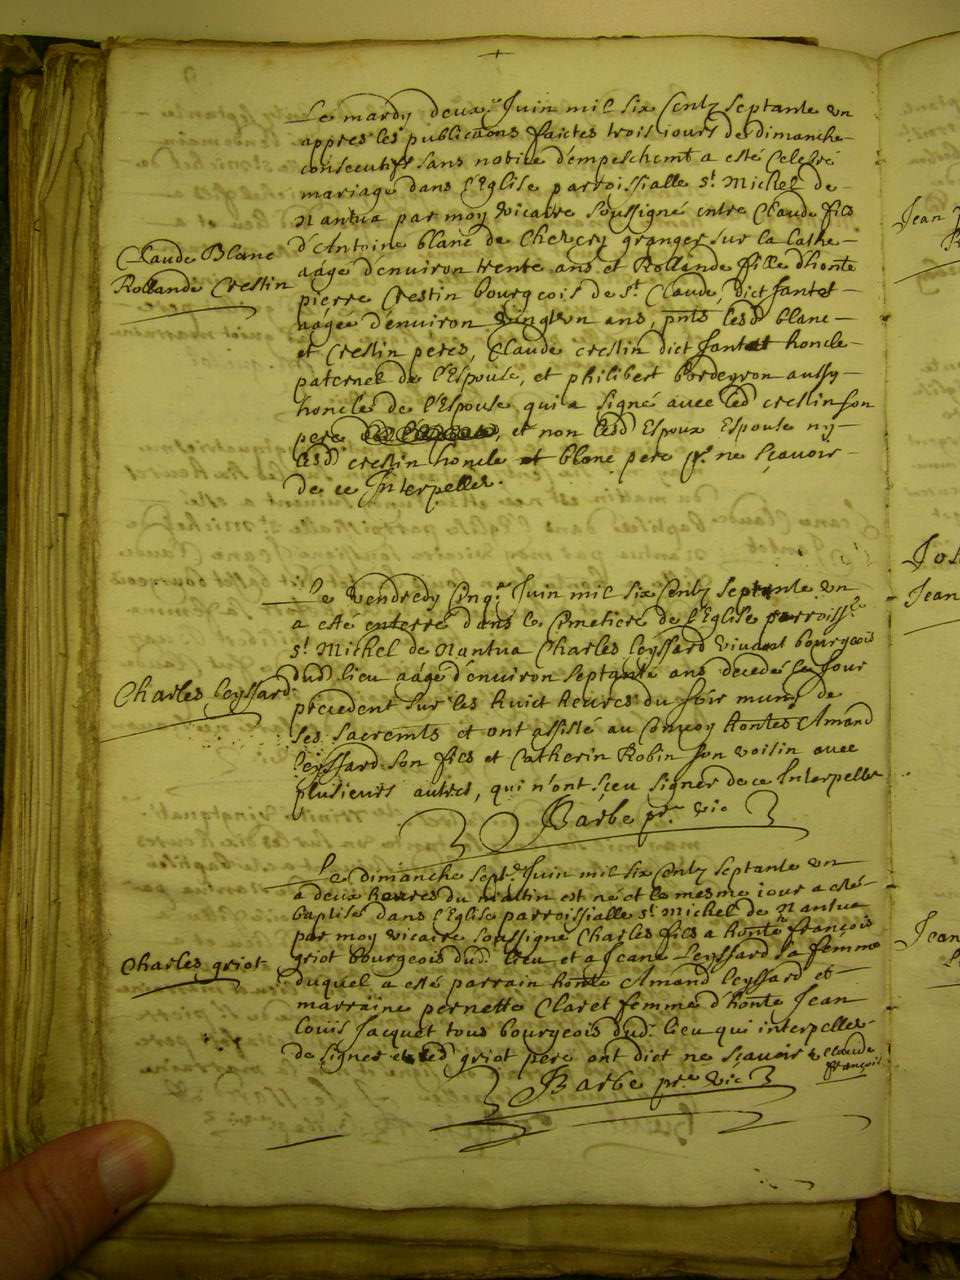 Le mardy deux.e Juin mil six Centz septante un
appres les publicaōns faictes trois iours de dimanche
consecutifs sans notice d'empeschemt a esté Celebré
mariage dans l'Eglise parroissialle st Michel de
Nantua par moy vicaire soussigné entre Claude fils
d'Antoine blanc de granger sur la
Claude Blanc
aagé d'environ trente ans et Rollande fille d'honte
Rollande Crestin
pierre Crestin bourgeois de st Claude, dict
aagée d'environ vingt un ans, pnts lesd blanc
et Crestin peres, Claude crestin dict honcle
paternel de l'Espouse, et philibert aussy
honcle de l'Espouse qui a signé avec led crestin son
pere, et non lesd Espoux Espouse ny
lesd crestin honcle et blanc pere pr ne sçavoir
de ce Interpellez.
Le Vendredy Cinq.e Juin mil six Centz septante un
a esté enterré dans le Cimetiere de l'Eglise parroiss.e
st Michel de Nantua Charles leyssard vivant bourgeois
dud lieu aagé d'environ septante ans decedé le Jour
Charles leyssard
precedent sur les huict heures du soir muny de
ses sacremts et ont assisté au Convoy hontes Amand
leyssard son fils et Catherin Robin son voisin avec
plusieurs autres, qui n'ont sçeu signer de ce Interpellez
Barbe ptre vic
Le dimanche sept.e Juin mil six Centz septante un
a deux heures du mattin est né et le mesme iour a esté
baptisé dans l'Eglise parroissialle st Michel de Nantua
par moy vicaire soussigné Charles fils a honte françois
Charles griot
griot bourgeois dud. lieu et a Jeane Leyssard sa femme
duquel a esté parrain honte Amand leyssard et
marraine pernette Claret femme d'honte Jean
Louis Jacquet tous bourgeois dud. lieu qui interpellez
de signer et led griot pere ont dict ne sçavoir
Claude
françois
Barbe ptre vic
Jean
Jos
Jean
Jean